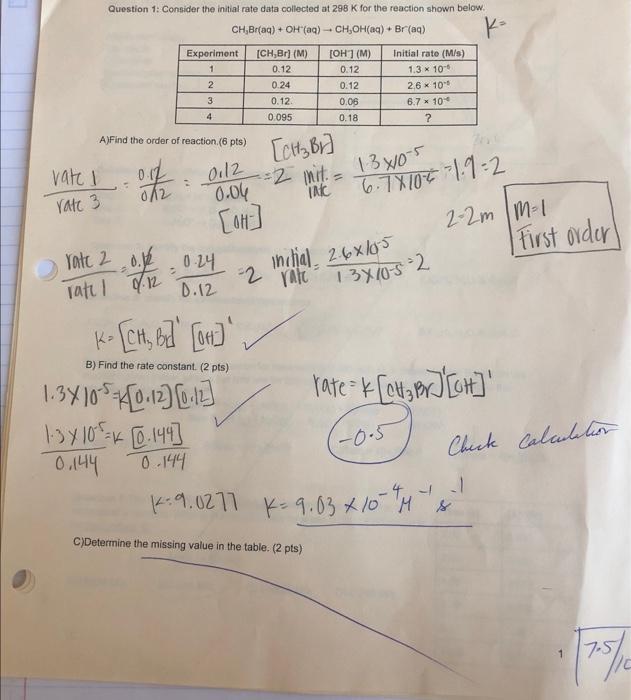 Question 1: Consider the initial rate data collected at 298 K for the reaction shown below.
K=
CH₃Br(aq) + OH⁻(aq) → CH₃OH(aq) + Br⁻(aq)
Experiment [CH₃Br] (M) [OH⁻] (M) Initial rate (M/s)
1 0.12 0.12 1.3 × 10⁻⁵
2 0.24 0.12 2.6 × 10⁻⁵
3 0.12. 0.06 6.7 × 10⁻⁶
4 0.095 0.18 ?
A)Find the order of reaction.(6 pts)
[CH₃Br]
rate 1 / rate 3 = 0.12 / 0.12 = 0.12 / 0.06 = 2 init. rate = 1.3 x10⁻⁵ / 6.7 X 10⁻⁶ = 1.9 = 2
[OH⁻]
2=2m
m=1
First order
rate 2 / rate 1 = 0.12 / 0.12 = 0.24 / 0.12 = 2 initial rate = 2.6 x 10⁻⁵ / 1.3 X 10⁻⁵ = 2
K= [CH₃ Br]¹ [OH]¹
B) Find the rate constant. (2 pts)
1.3 X 10⁻⁵=K[0.12][0.12]
rate = K [CH₃Br]¹[OH]¹
1.3 X 10⁻⁵ = K [0.144]
0.144 0.144
-0.5
Check Calculation
K=9.0277 K= 9.03 x 10⁻⁴ M⁻¹ s⁻¹
C)Determine the missing value in the table. (2 pts)
1
7.5/10